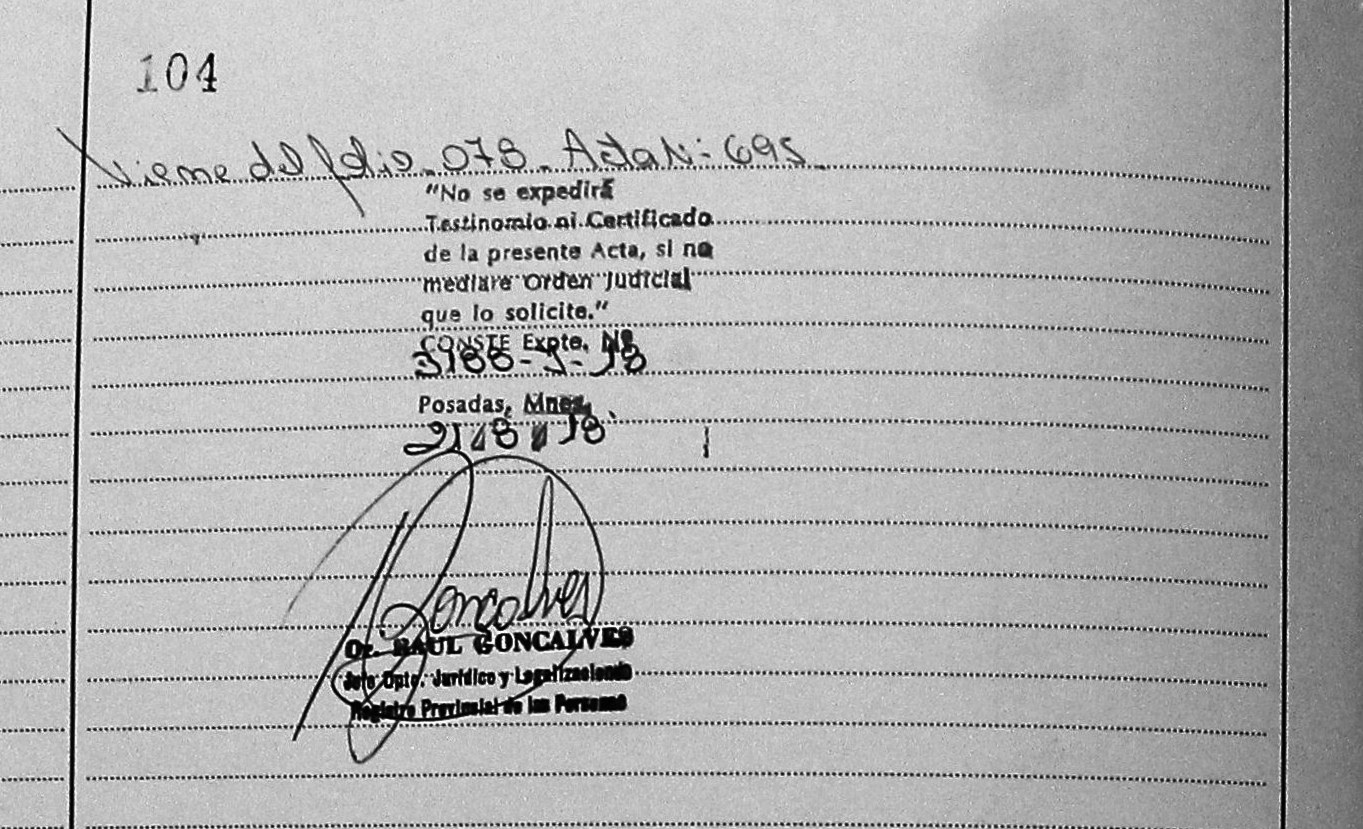 104
Viene del folio 078. Acta N: 695
"No se expedirá
Testinomio ni Certificado
de la presente Acta, si no
mediare Orden Judicial
que lo solicite."
CONSTE Expte. Nº
Posadas, Mnes,
Goncalves
Dr. RAUL GONCALVES
Jefe Dpto. Jurídico y Legalizaciones
Registro Provincial de las Personas